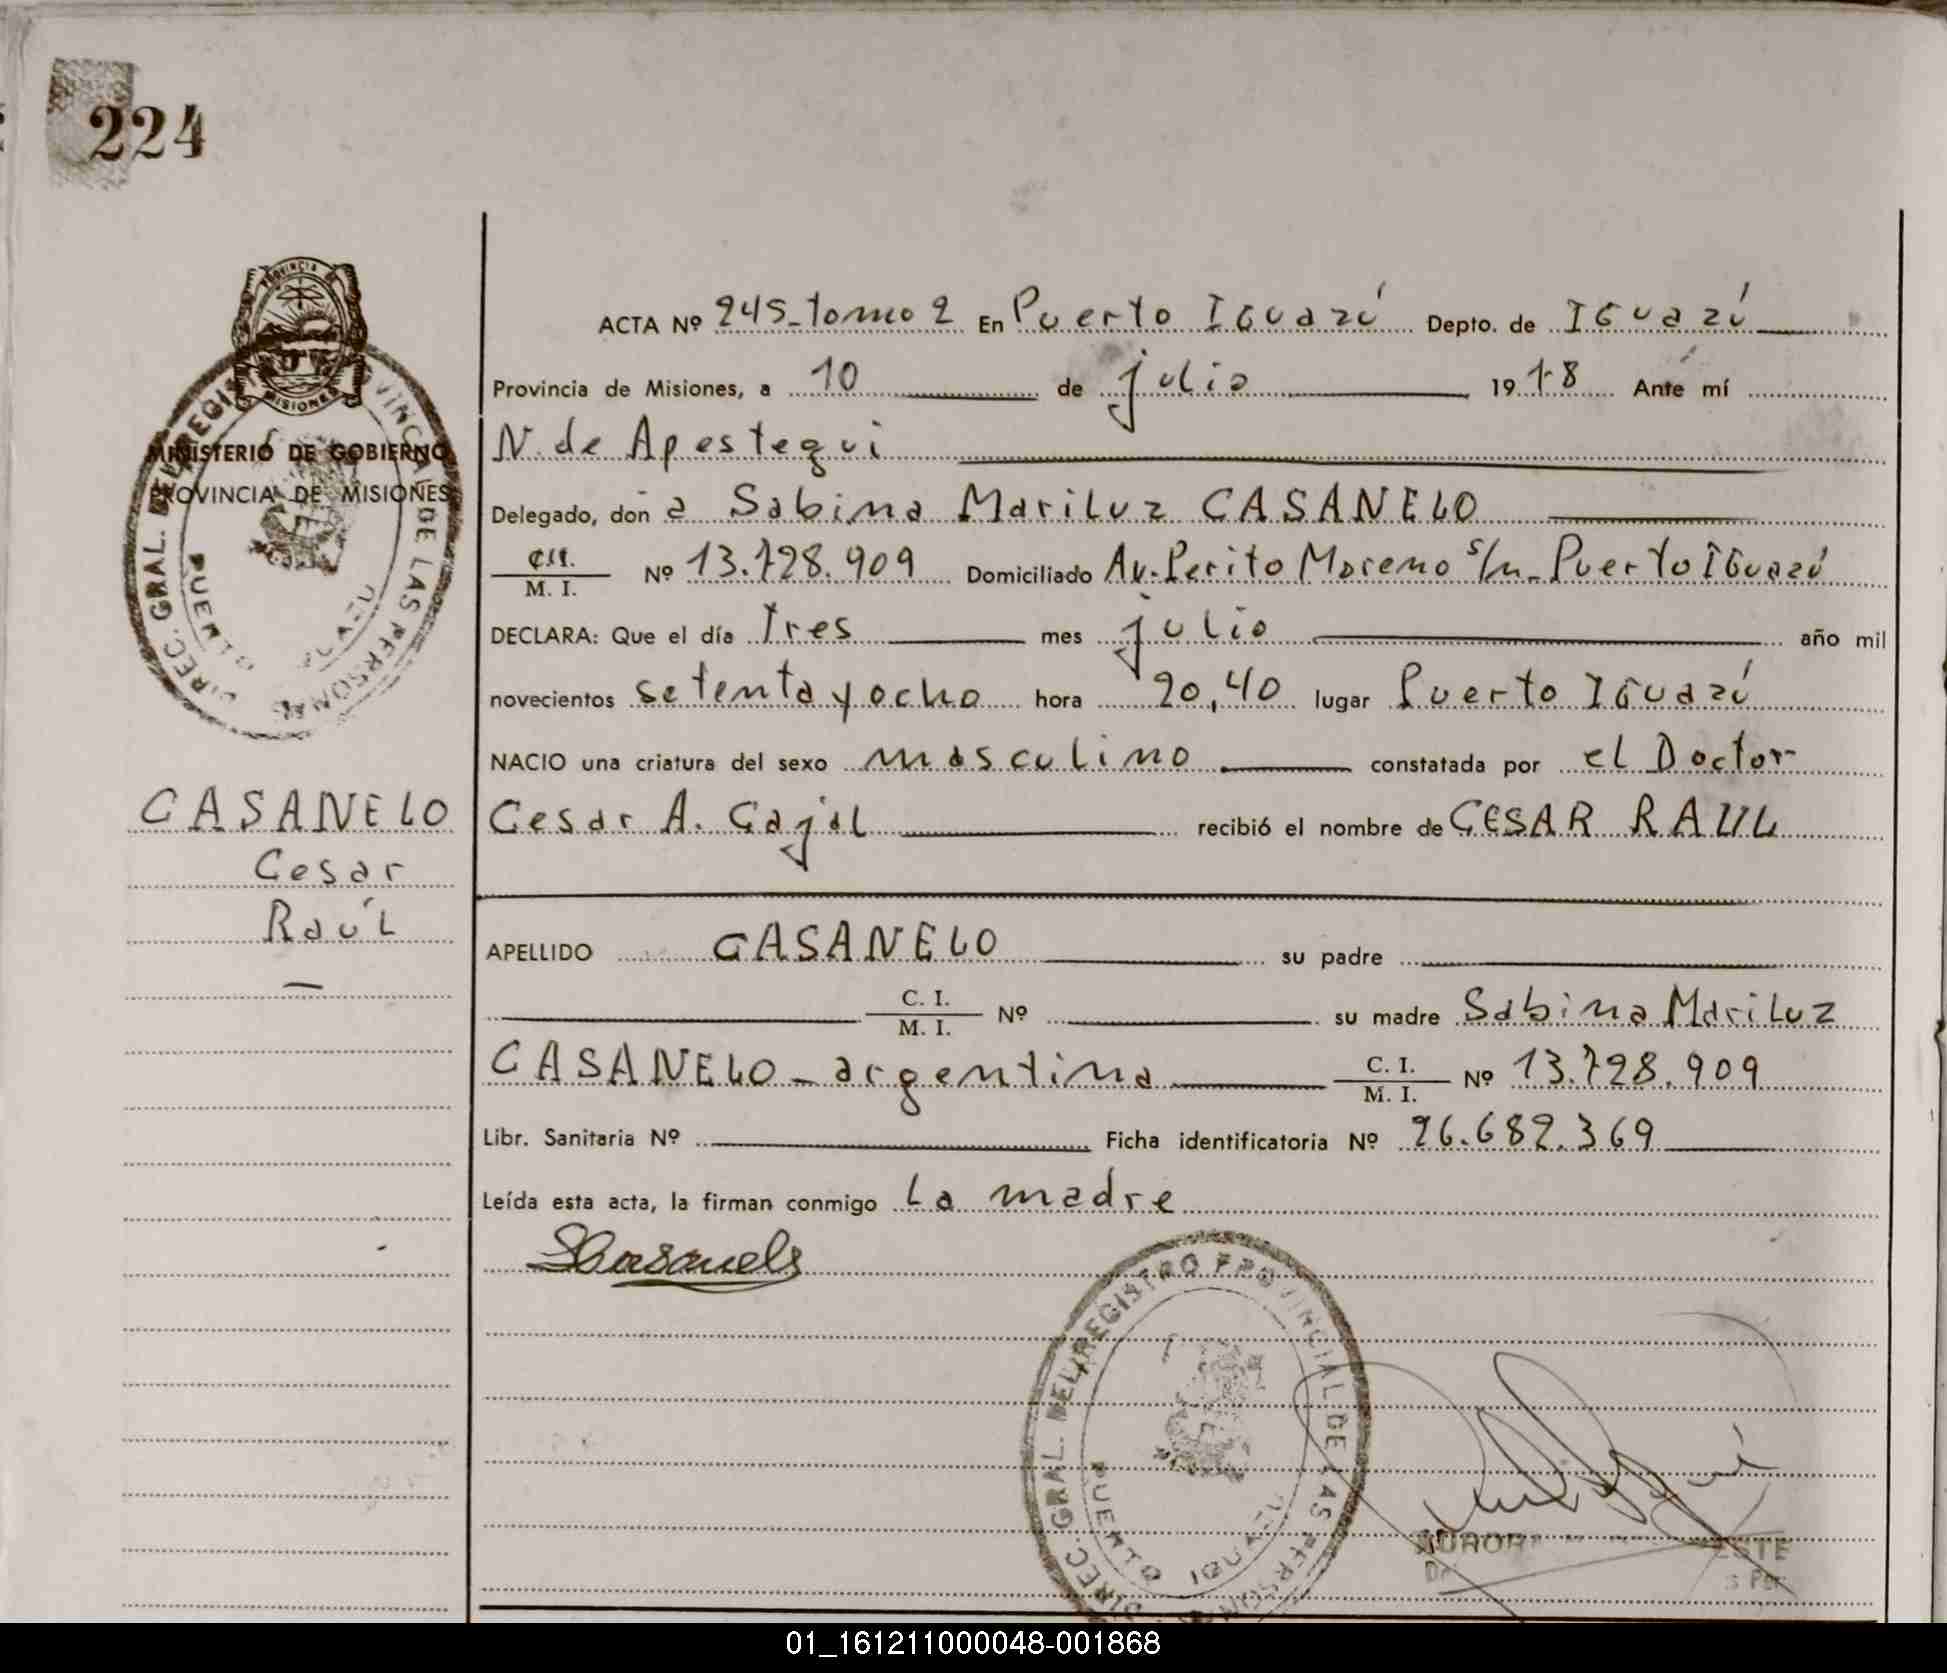 224
PROVINCIA DE
MISIONES
MINISTERIO DE GOBIERNO
PROVINCIA DE MISIONES
DIREC. GRAL. DEL REGISTRO PROVINCIAL DE LAS PERSONAS
PUERTO IGUAZU
ACTA Nº 245_tomo 2 En Puerto IGuazú Depto. de IGuazú
Provincia de Misiones, a 10 de julio 19 78 Ante mí
N. de Apestegui
Delegado, don a Sabina Mariluz CASANELO
C.I. / M. I. Nº 13.728.909 Domiciliado Av. Perito Moreno s/n_ Puerto IGuazú
DECLARA: Que el día tres mes julio año mil
novecientos setenta y ocho hora 20,40 lugar Puerto IGuazú
NACIO una criatura del sexo masculino constatada por el Doctor
Cesar A. Cajal recibió el nombre de CESAR RAUL
CASANELO
Cesar
Raúl
APELLIDO CASANELO su padre
C. I. / M. I. Nº su madre Sabina Mariluz
CASANELO _ argentina C. I. / M. I. Nº 13.728.909
Libr. Sanitaria Nº Ficha identificatoria Nº 26.682.369
Leída esta acta, la firman conmigo la madre
SCasanelo
DIREC. GRAL. DEL REGISTRO PROVINCIAL DE LAS PERSONAS
PUERTO IGUAZU
01_161211000048-001868